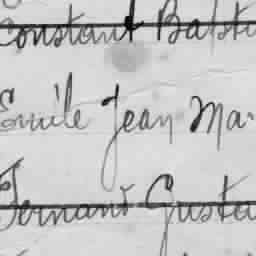 Constant Bapti
Emile Jean Ma
Fernand Gusta